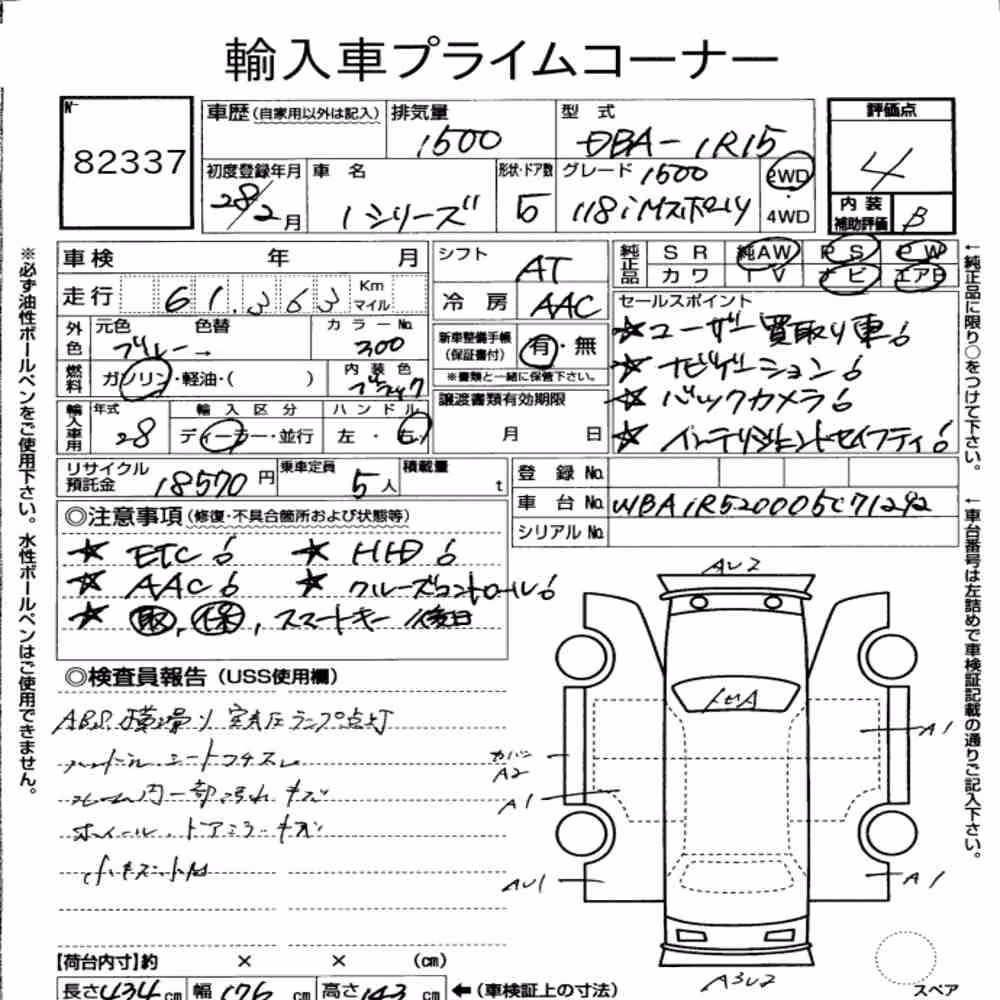 輸入車プライムコーナー
No 82337
車歴(自家用以外は記入) 排気量 1500 型式 DBA-1R15
評価点 4
初度登録年月 28/2月 車名 1シリーズ 形状・ドア数 5 グレード 1500 118i Mスポーツ 2WD・4WD
内装補助評価 B
※必ず油性ボールペンをご使用下さい。水性ボールペンはご使用できません。
車検 年 月
走行 61,363 Km マイル
外色 元色 ブルー→ 色替 カラーNo. 300
燃料 ガソリン・軽油・( ) 内装色 ブラック
輸入車用 年式 28 輸入区分 ディーラー・並行 ハンドル 左・右
シフト AT
冷房 AAC
新車整備手帳(保証書付) 有・無
※書類と一緒に保管下さい。
譲渡書類有効期限
月 日
純正品 SR 純AW PS PW
カワ TV ナビ エアB
セールスポイント
☆ユーザー買取り車!
☆ナビゲーション!
☆バックカメラ!
☆インテリジェントセイフティ!
←純正品に限り○をつけて下さい。
リサイクル預託金 18570円 乗車定員 5人 積載量 t
登録No.
車台No. WBA1R520005C71292
シリアルNo.
←車台番号は左詰めで車検証記載の通りご記入下さい。
◎注意事項(修復・不具合箇所および状態等)
☆ ETC! ☆ HID!
☆ AAC! ☆ クルーズコントロール!
☆ 取,保,スマートキー 後日
◎検査員報告(USS使用欄)
ABS、横滑り 空気圧ランプ点灯
ハンドル、シートコゲスレ
フレーム内一部汚れ キズ
ホイール、ドアミラーキズ
小キズ凹
AU2
トビA
A1
カバン A2
A1
AU1
A1
A3U2
スペア
【荷台内寸】約 × × (cm)
長さ434cm 幅176cm 高さ143cm ←(車検証上の寸法)